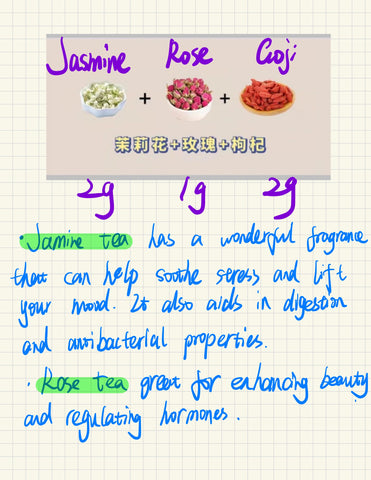 Jasmine Rose Goji
+ +
茉莉花+玫瑰+枸杞
2g 1g 2g
· Jamine tea has a wonderful fragrance
that can help soothe stress and lift
your mood. It also aids in digestion
and antibacterial properties.
· Rose tea great for enhancing beauty
and regulating hormones.